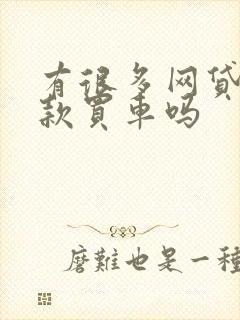 有很多网贷
款買車吗
磨難也是一種